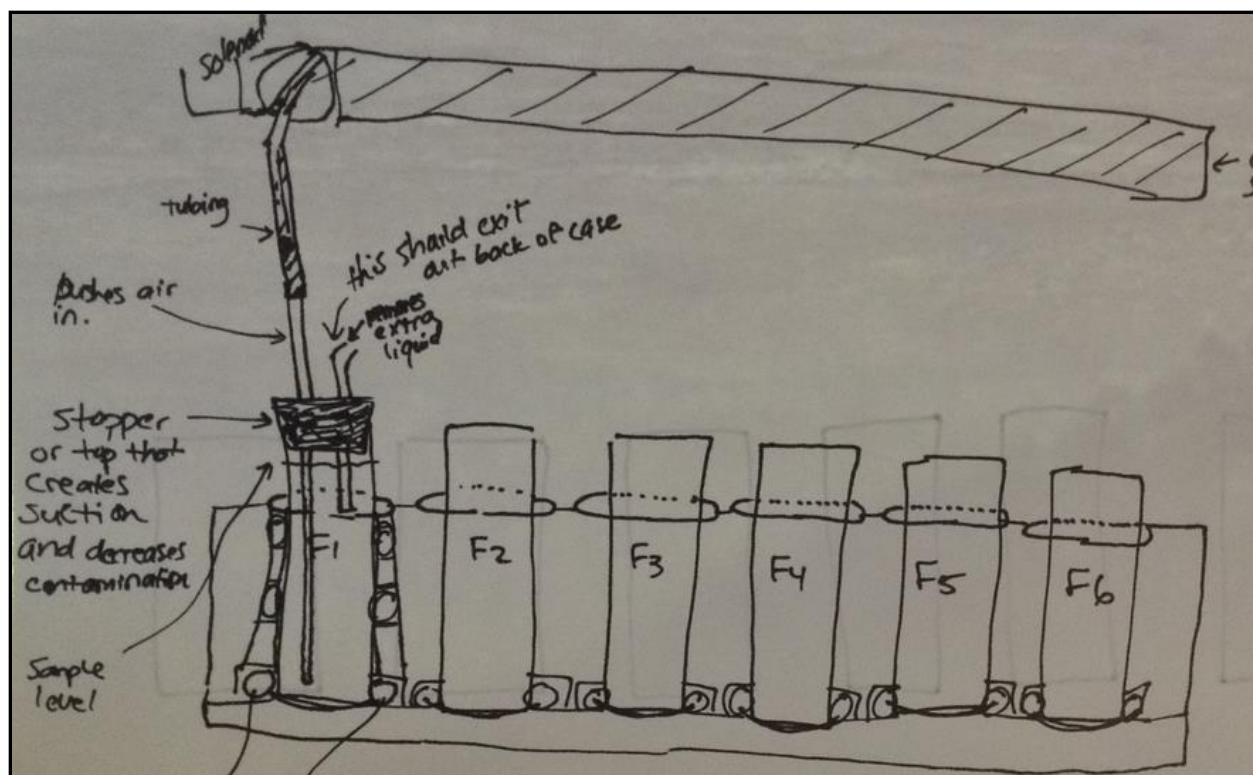 Solenoid
tubing
this should exit
out back of case
pushes air
in.
removes
extra
liquid
Stopper
or top that
creates
suction
and decreases
contamination
F1
F2
F3
F4
F5
F6
Sample
level